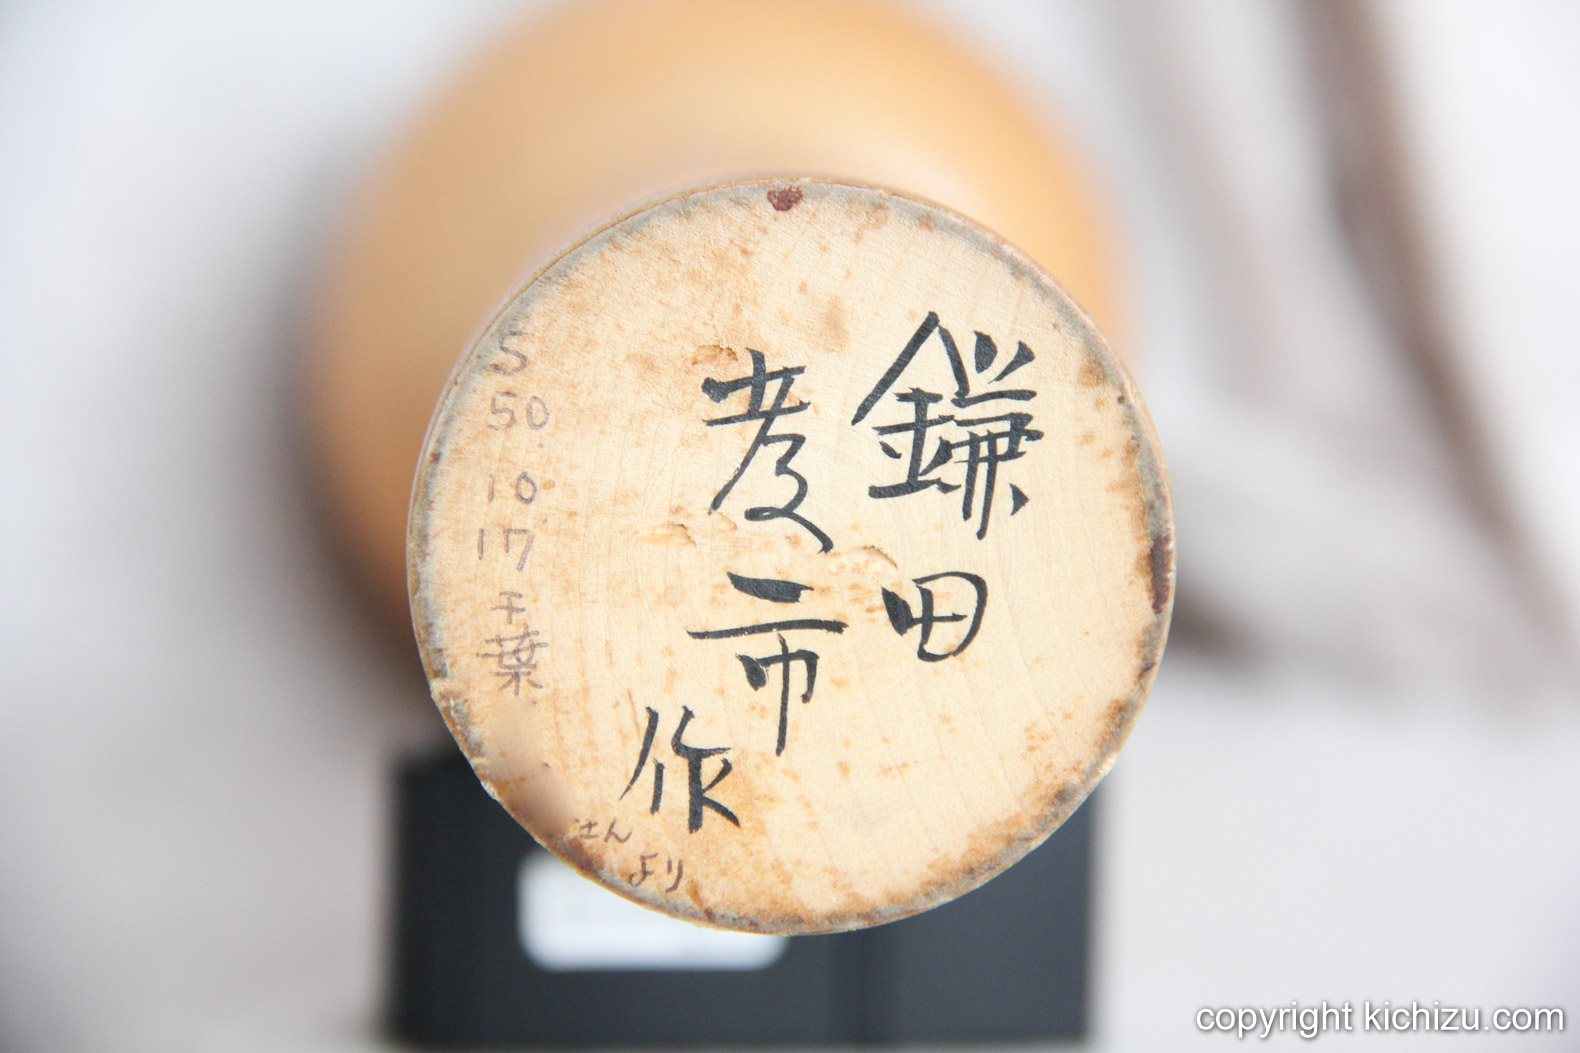 鎌田
孝市
作
S
50.
10.
17
千葉
さん
より
copyright kichizu.com